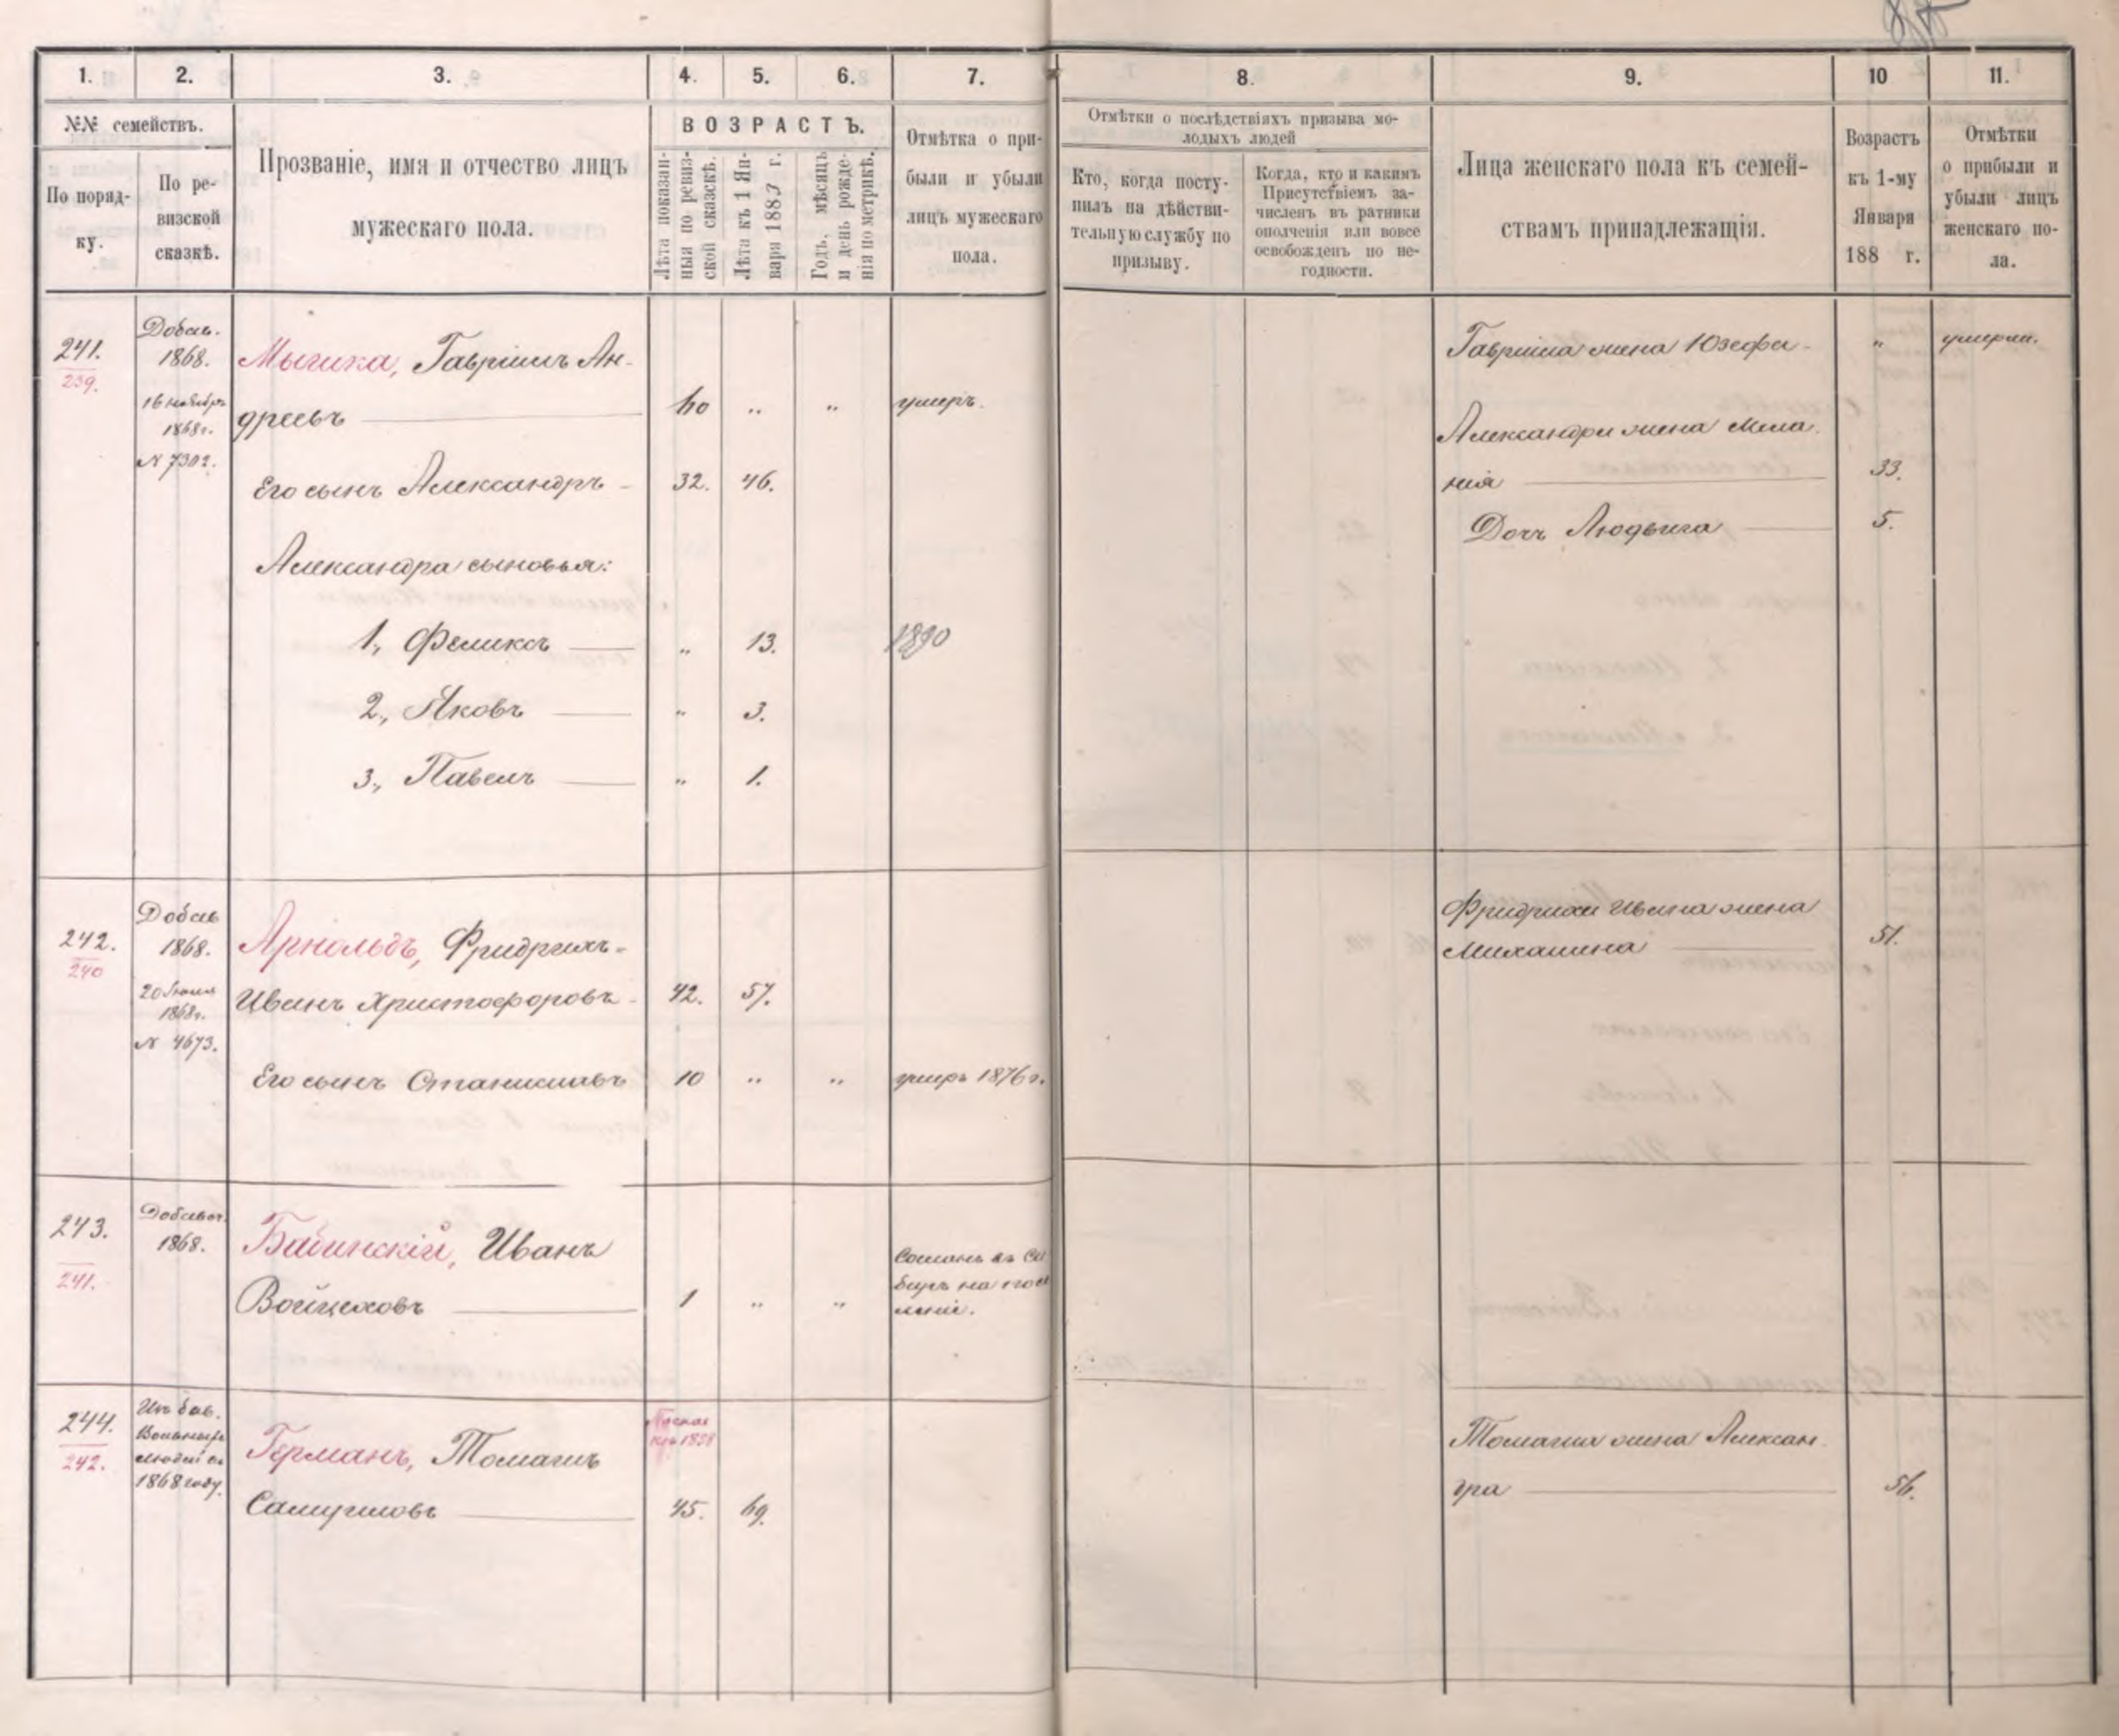 1. 2. 3. 4. 5. 6. 7. 8. 9. 10 11.
№№ семействъ.
По поряд-
ку.
По ре-
визской
сказкѣ.
Прозваніе, имя и отчество лицъ
мужескаго пола.
ВОЗРАСТЪ.
Лѣта показан-
ныя по ревиз-
ской сказкѣ.
Лѣта къ 1 Ян-
варя 1883 г.
Годъ, мѣсяцъ
и день рожде-
нія по метрикѣ.
Отмѣтка о при-
были и убыли
лицъ мужескаго
пола.
Отмѣтки о послѣдствіяхъ призыва мо-
лодыхъ людей
Кто, когда посту-
пилъ на дѣйстви-
тельную службу по
призыву.
Когда, кто и какимъ
Присутствіемъ за-
численъ въ ратники
ополченія или вовсе
освобожденъ по не-
годности.
Лица женскаго пола къ семей-
ствамъ принадлежащія.
Возрастъ
къ 1-му
Января
188 г.
Отмѣтки
о прибыли и
убыли лицъ
женскаго по-
ла.
241.
239.
Добав.
1868.
16 ноября
1868г.
№ 7302.
Гавріилъ Ан-
дреевъ 60 „ „ умеръ.
Его сынъ Александръ 32. 46.
Александра сыновья:
1., Феликсъ „ 13. 1890
2., Яковъ „ 3.
3., Павелъ „ 1.
Гавріила жена Юзефа „ умерла.
Александра жена Мела-
нія 33.
Дочь Людвига 5.
242.
240
Добав
1868.
20 Іюня
1868г.
№ 4673.
Арнольдъ, Фридрихъ-
Иванъ Христофоровъ 42. 57.
Его сынъ Станиславъ 10 „ „ умеръ 1876 г.
Фридриха Ивана жена
Михалина 51.
243.
241.
Добавоч.
1868.
Бабинскій, Иванъ
Войцеховъ 1 „ „
Сосланъ въ Си
биръ на посе
леніе.
244.
242.
людей въ
1868 году.
Германъ, Томашъ
Самуиловъ 45. 69.
сказк
1858
Томаша жена Алексан-
дра 56.